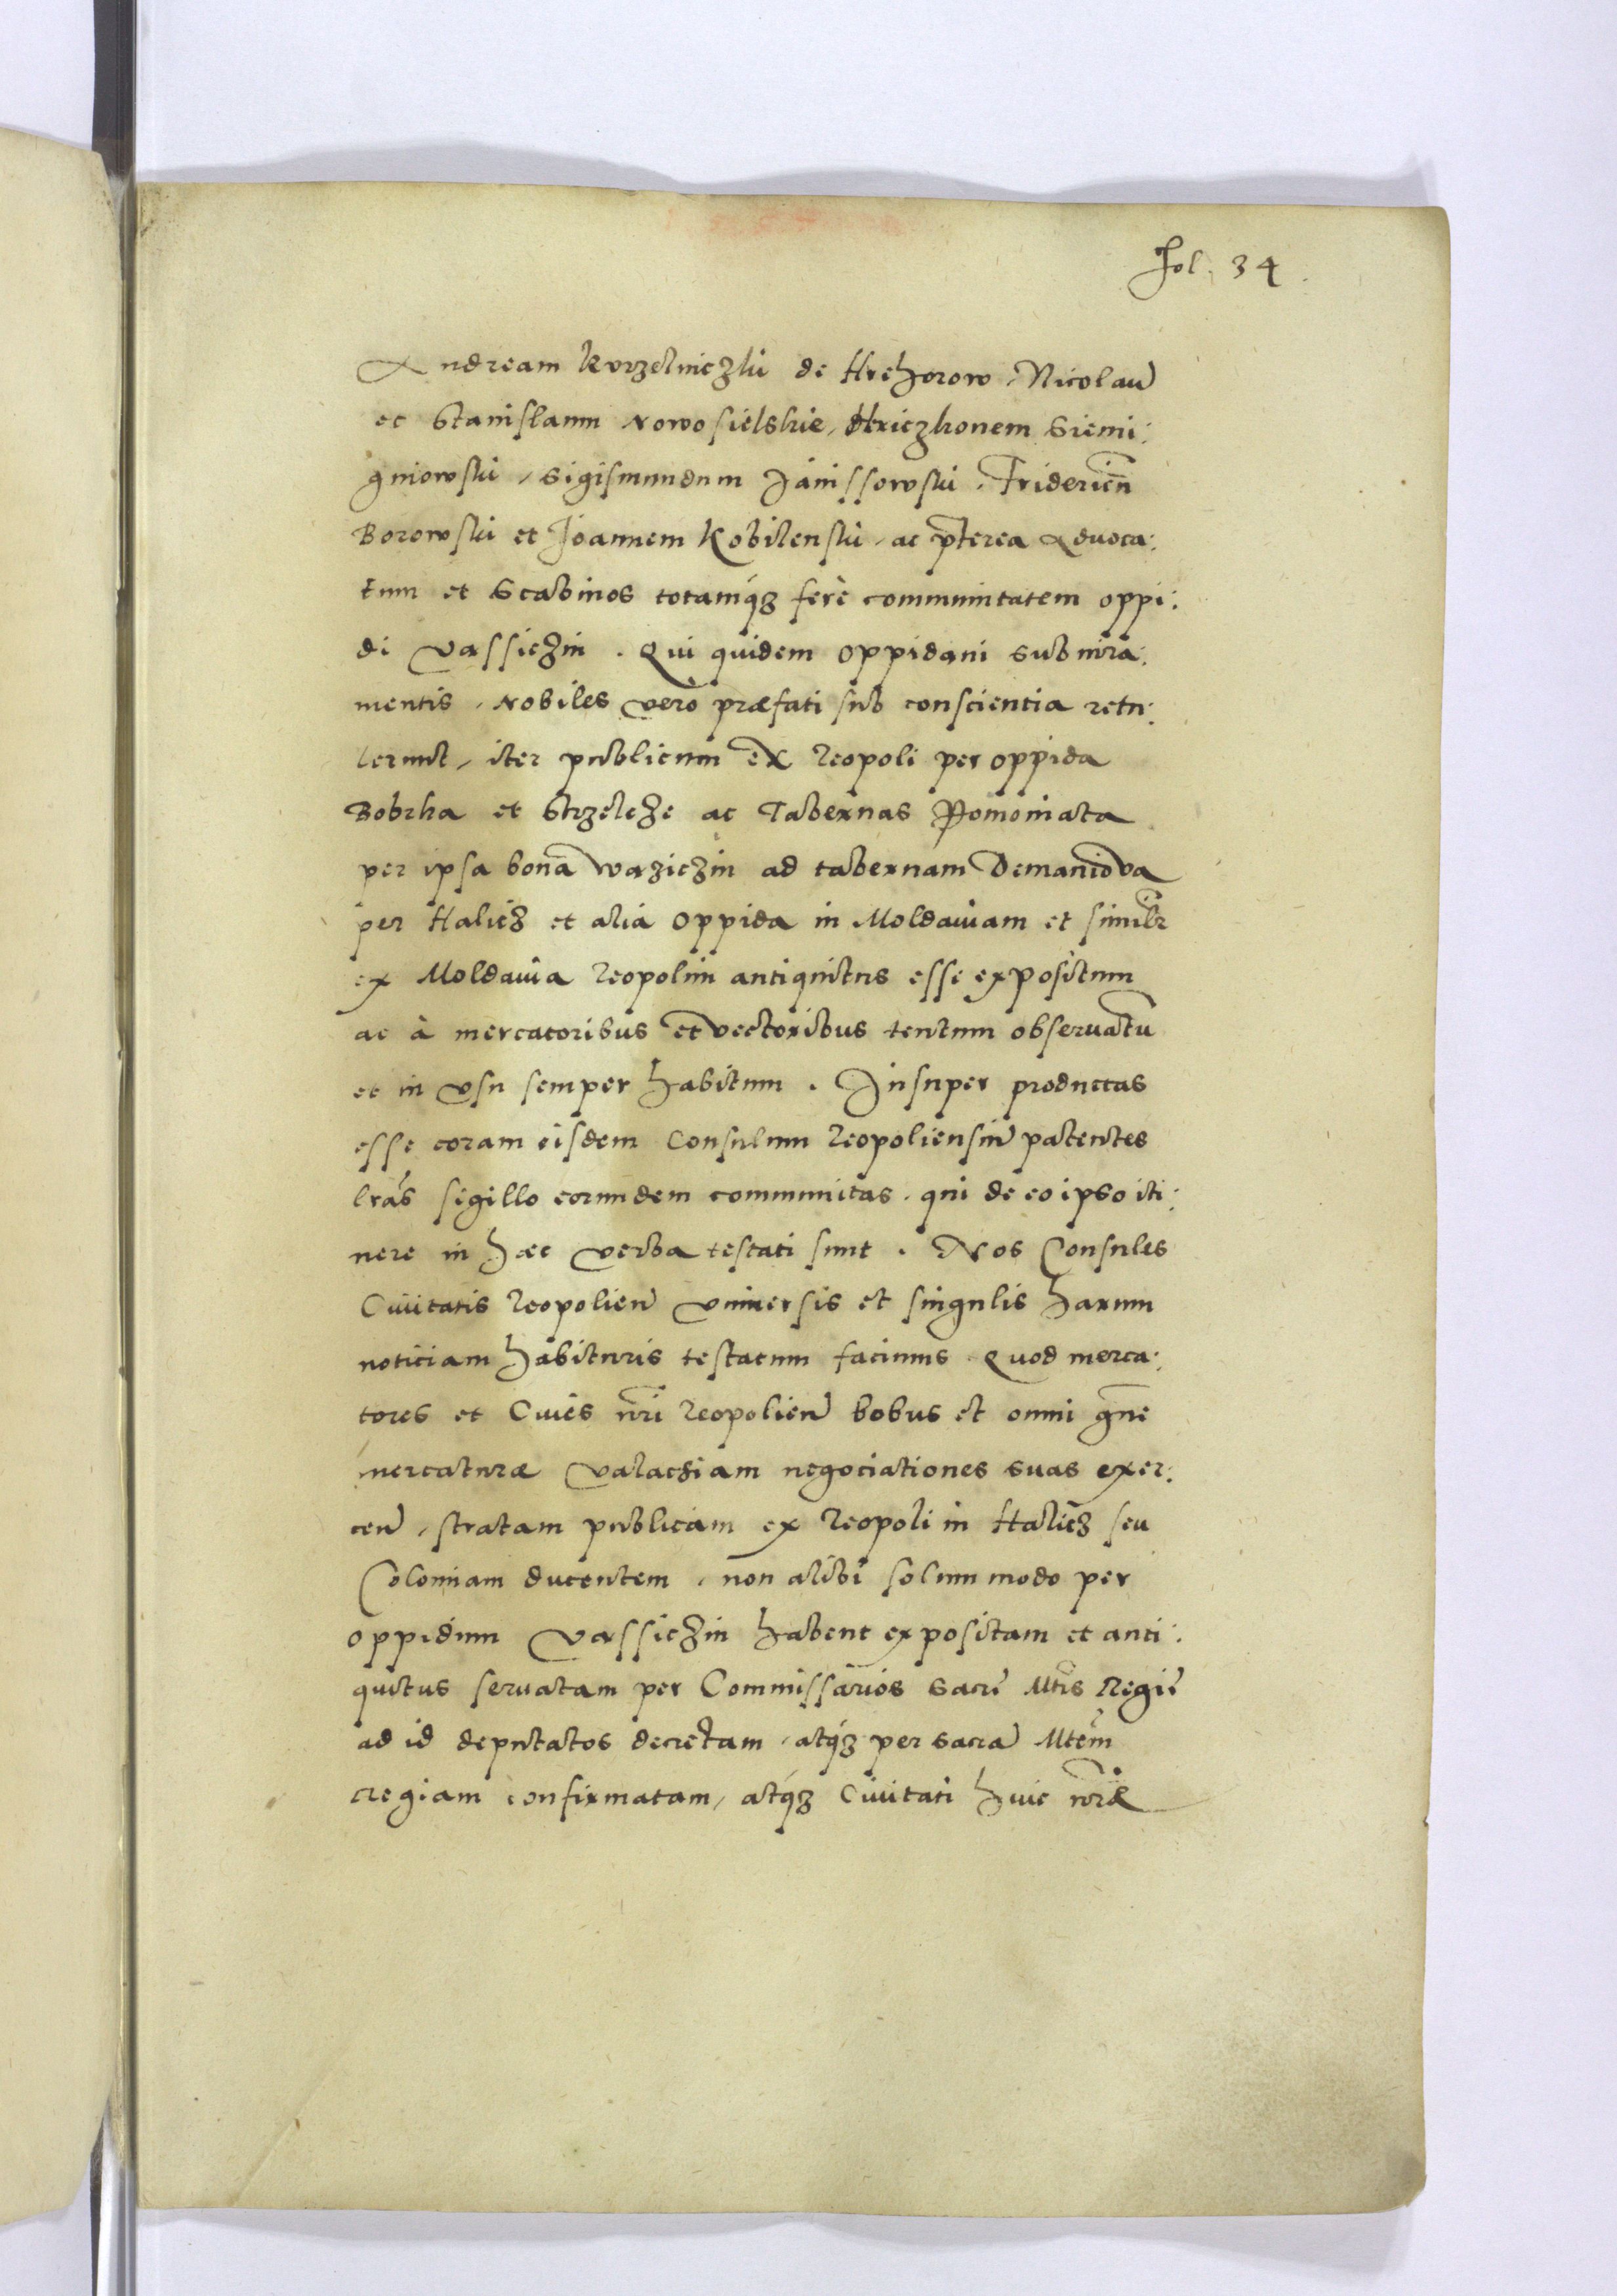 Fol. 34
Andream Kurzelniczki de Hrehorow, Nicolaũ
et Stanislaum Nowosielskie, Hriczkonem Siemi:
gniowski, Sigismundum Janissowski, Fridericũ
Borowski et Joannem Kobilenski, ac p̃terea Aduoca:
tum et Scabinos totamq́ꝫ ferè communitatem oppi:
di Vassiczin. Qui quidem oppidani sub iura:
mentis, Nobiles verò præfati sub conscientia retu:
lerunt, iter publicum ex Leopoli per oppida
Bobrka et Strzelcze ac Tabernas Pomoniata
per ipsa bona Wasiczin ad tabernam Demanidua
per Halicz et alia oppida in Moldauiam et similr̃
ex Moldauia Leopolim antiquitus esse expositum
ac à mercatoribus et vectoribus tentum obseruatũ
et in vsu semper habitum. Insuper productas
esse coram eisdem Consulum Leopoliensiũ patentes
lrãs sigillo eorundem communitas, qui de eo ipso iti:
nere in hæc verba testati sunt. Nos Consules
Ciuitatis Leopolieñ vniuersis et singulis harum
noticiam habituris testatum facimus. Quod merca:
tores et Ciues nrĩ Leopolieñ bobus et omni gñe
mercaturæ Valachiam negociationes suas exer:
ceñ, stratam publicam ex Leopoli in Halicz seu
Colomiam ducentem, non alibi solummodo per
oppidum Vassiczin habent expositam et anti:
quitus seruatam per Commissarios Sacrę Mtĩs Regię
ad id deputatos decretam, atq́ꝫ per sacrã Mtẽm
regiam confirmatam, atq́ꝫ Ciuitati huic nræ̃